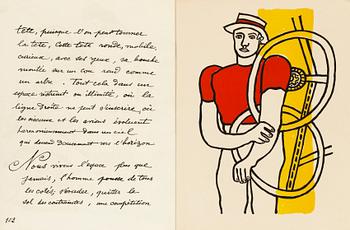 tête, puisque l'on peut tourner
la tête, cette tête ronde, mobile,
curieux, avec ses yeux, sa bouche
montée sur un cou rond comme
un arbre. Tout cela dans un
espace restreint ou illimité, où la
ligne droite ne peut s'inscrire, où
les oiseaux et les avions évoluent
harmonieusement dans un ciel
qui descend doucement vers l'horizon
Nous vivons l'espace plus que
jamais, l'homme pousse de tous
les cotés, s'évader, quitter le
sol des contraintes, une compétition
112